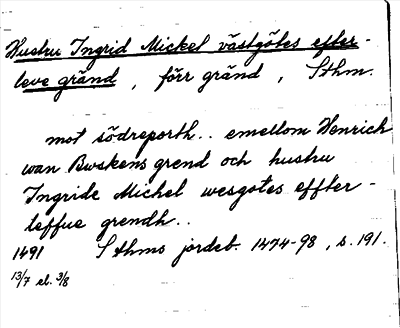 Hustru Ingrid Mickel västgötes efter-
leve gränd, förr gränd, Sthm.
mot södreporth.. emellom Henrich
wan Bwskens grend och hustru
Ingride Michel wesgøtes effter-
leffue grendh..
1491 Sthms jordeb. 1474-98, s. 191.
13/7 el. 3/8